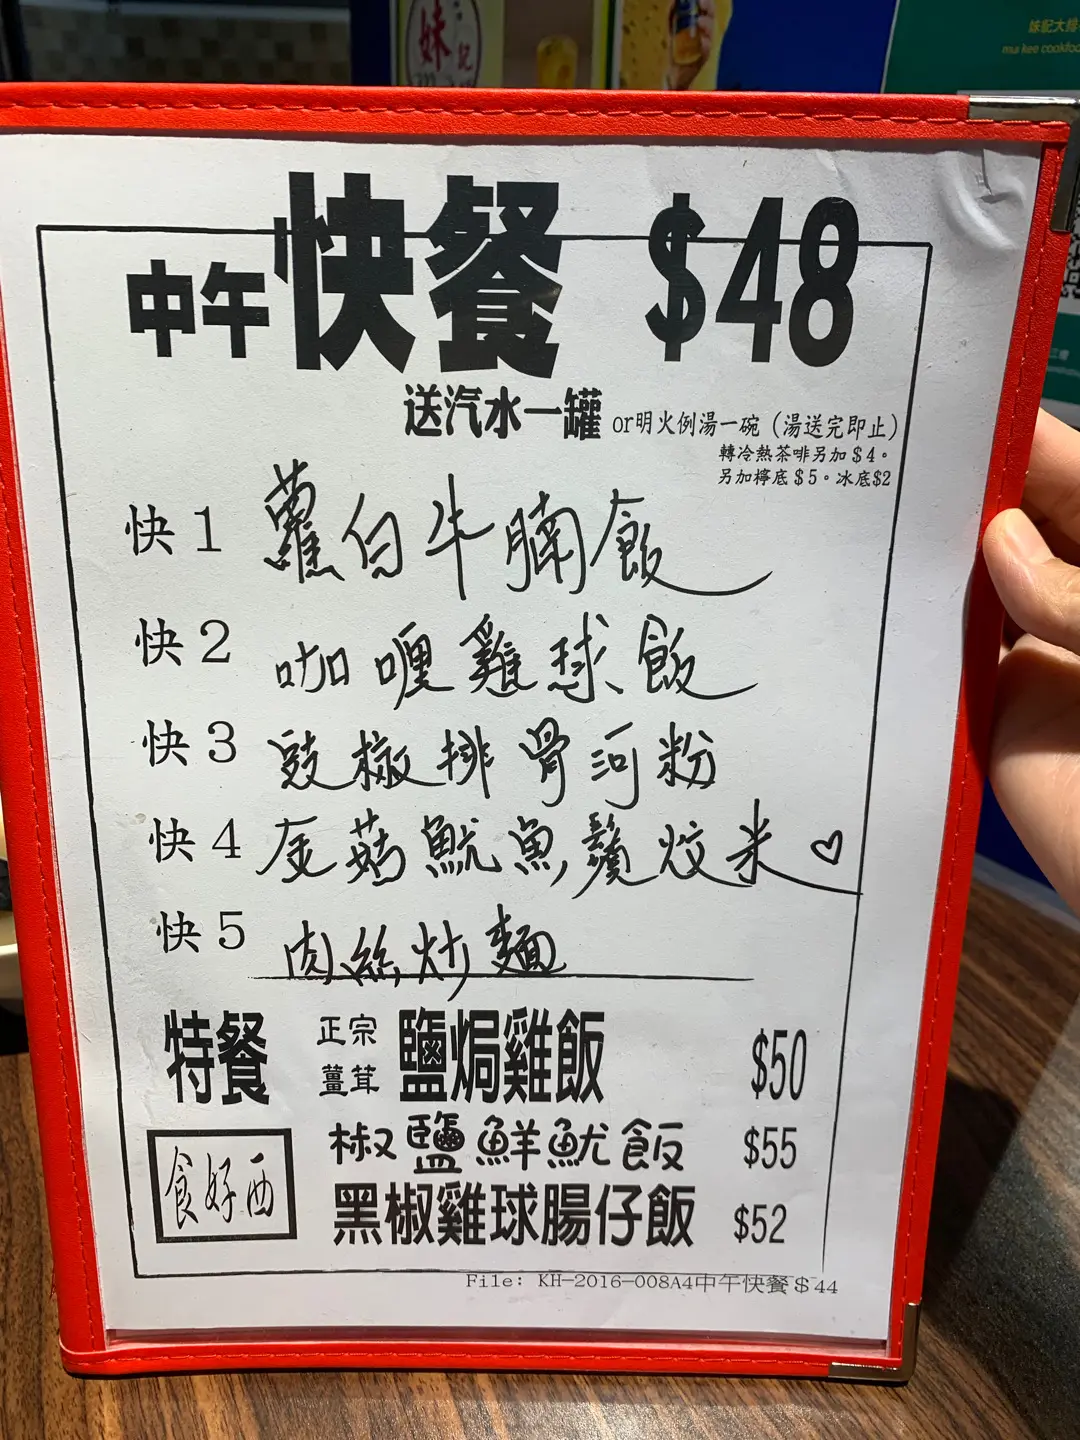 妹記
妹記大排
mui kee cookfoo
中午快餐 $48
送汽水一罐 or明火例湯一碗（湯送完即止）
轉冷熱茶啡另加$4。
另加檸底$5。冰底$2
快1 蘿白牛腩飯
快2 咖喱雞球飯
快3 豉椒排骨河粉
快4 金菇魷魚鬚炆米♡
快5 肉絲炒麵
特餐 正宗薑茸 鹽焗雞飯 $50
椒鹽鮮魷飯 $55
食好西
黑椒雞球腸仔飯 $52
File: KH-2016-008A4中午快餐$44